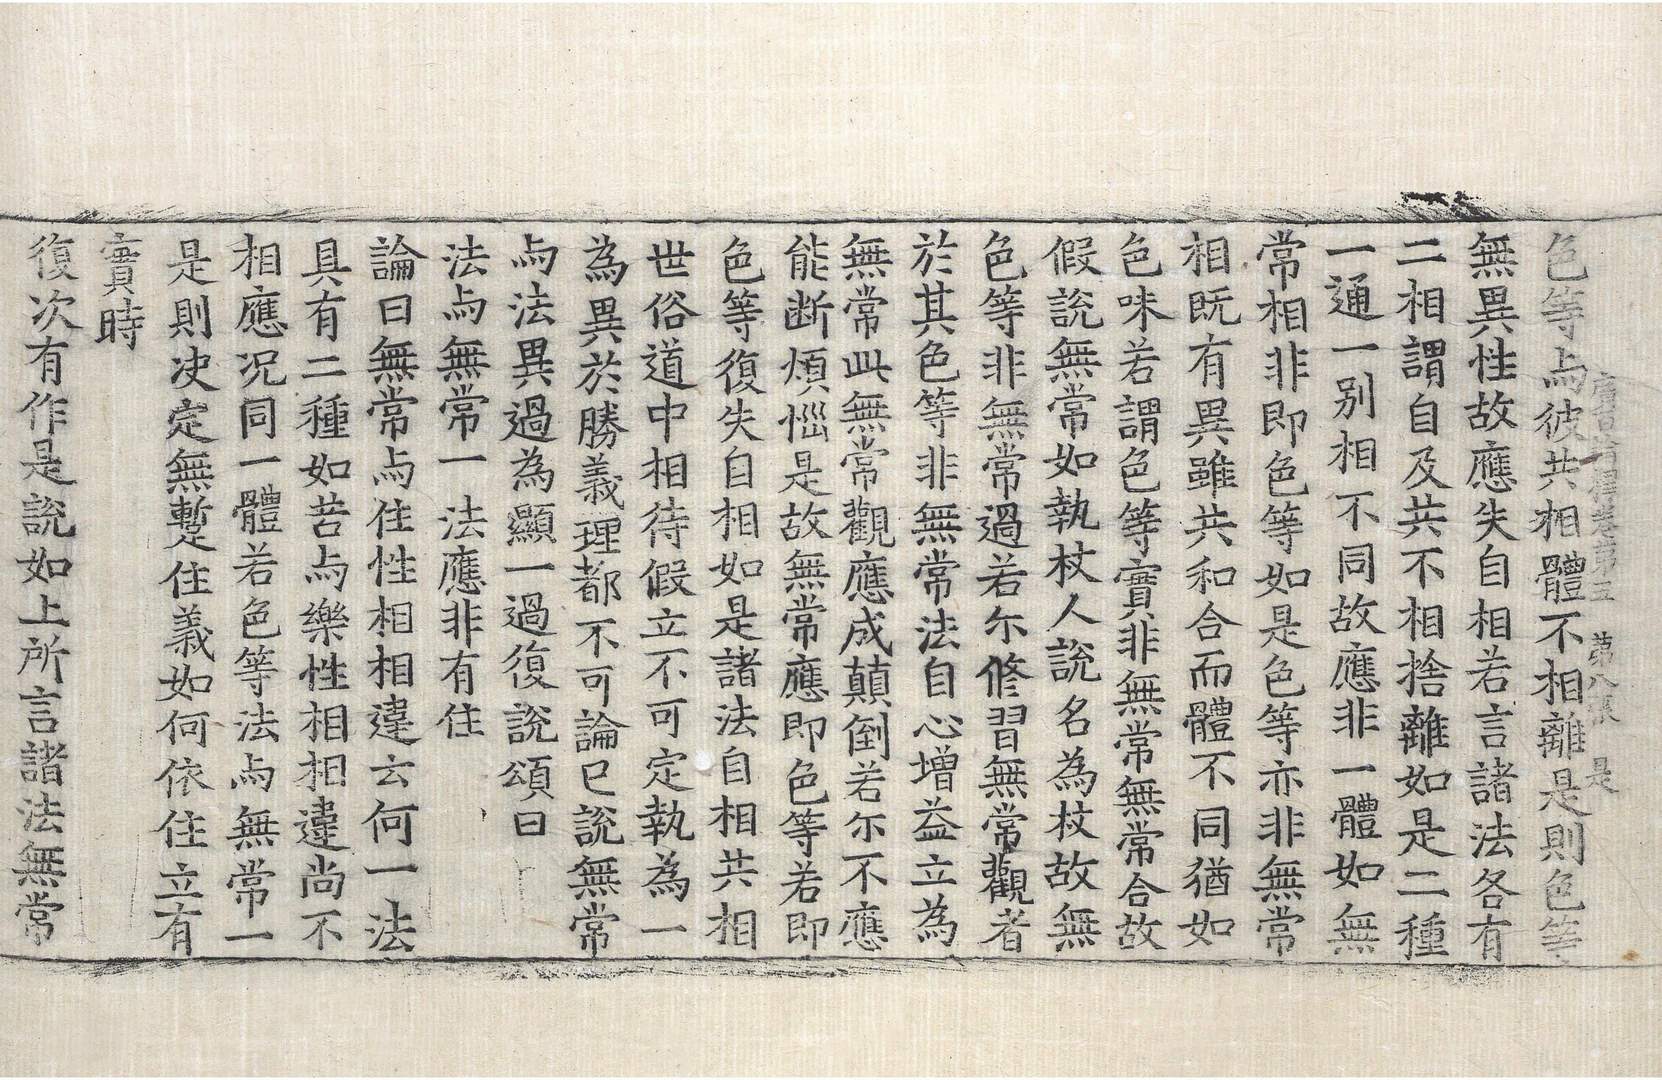 廣百論釋卷第三　第八張　是
色等与彼共相體不相離是則色等
無異性故應失自相若言諸法各有
二相謂自及共不相捨離如是二種
一通一别相不同故應非一體如無
常相非即色等如是色等亦非無常
相既有異雖共和合而體不同猶如
色味若謂色等實非無常無常合故
假說無常如執杖人說名為杖故無
色等非無常過若尒修習無常觀者
於其色等非無常法自心增益立為
無常此無常觀應成顛倒若尒不應
能断煩惱是故無常應即色等若即
色等復失自相如是諸法自相共相
世俗道中相待假立不可定執為一
為異於勝義理都不可論已說無常
与法異過為顯一過復說頌曰
法与無常一　法應非有住
論曰無常与住性相相違云何一法
具有二種如苦与樂性相相違尚不
相應况同一體若色等法与無常一
是則决定無暫住義如何依住立有
實時
復次有作是說如上所言諸法無常